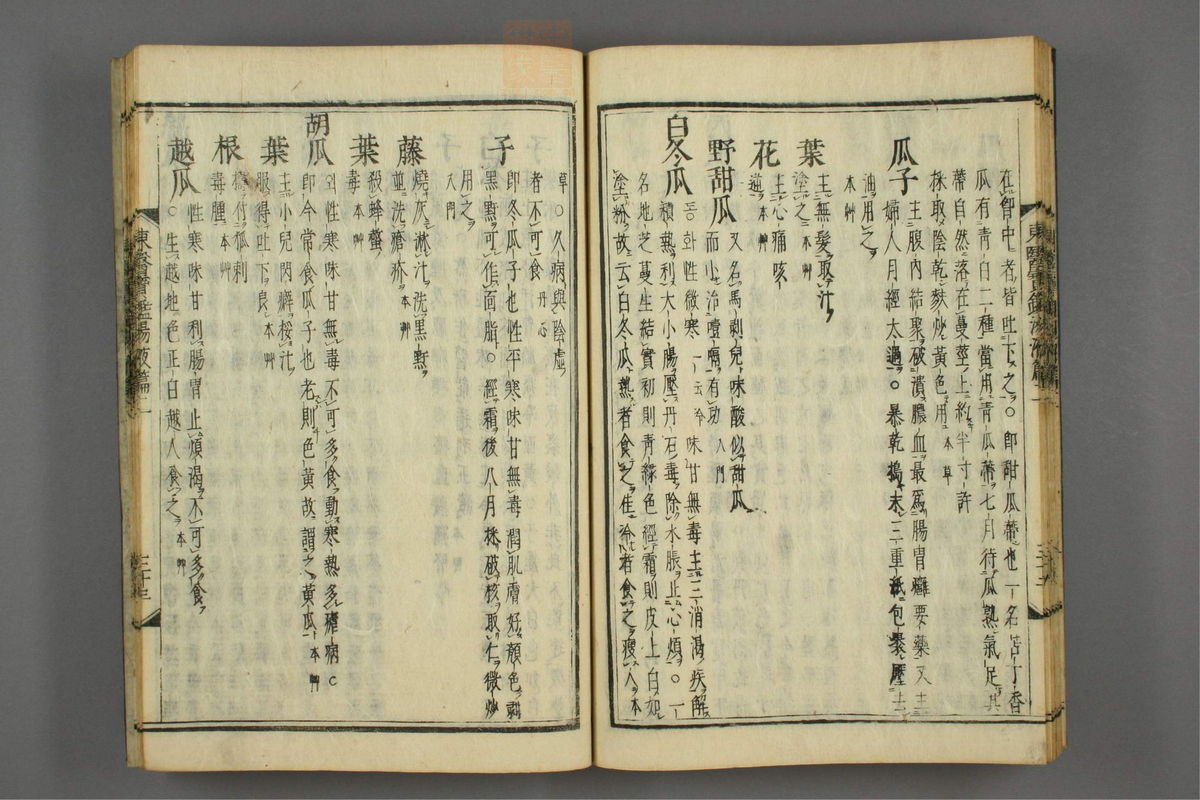 在胷中者皆吐下之○卽甜瓜蒂也一名苦丁香
瓜有青白二種當用青瓜蒂七月待瓜熟氣足其
蒂自然落在蔓莖上約半寸許
採取陰乾麩炒黃色用本草
瓜子主腹內結聚破潰膿血最爲腸胃癰要藥又主
婦人月經太過○暴乾搗末三重紙包裹壓去
油用之
本艸
葉主無髮取汁
塗之本艸
花主心痛咳
逆本艸
野甜瓜又名馬剝兒味酸似甜瓜
而小治噎膈有功入門
白冬瓜동화性微寒一云冷味甘無毒主三消渴疾解
積熱利大小腸壓丹石毒除水脹止心煩○一
名地芝蔓生結實初則青綠色經霜則皮上白如
塗粉故云白冬瓜熟者食之佳冷者食之瘦人本
草○久病與陰虛
者不可食丹心
子卽冬瓜子也性平寒味甘無毒潤肌膚好顏色剝
黑䵟可作面脂○經霜後八月採破核取仁微炒
用之
入門
藤燒灰淋汁洗黑䵟
並洗瘡疥本艸
葉殺蜂螫
毒本艸
胡瓜외性寒味甘無毒不可多食動寒熱多瘧病○
卽今常食瓜子也老則色黃故謂之黃瓜本艸
葉主小兒閃癖挼汁
服得吐下良本艸
根搗付狐刺
毒腫本艸
越瓜性寒味甘利腸胃止煩渴不可多食
○生越地色正白越人食之本艸
東醫寶鑑湯液篇二